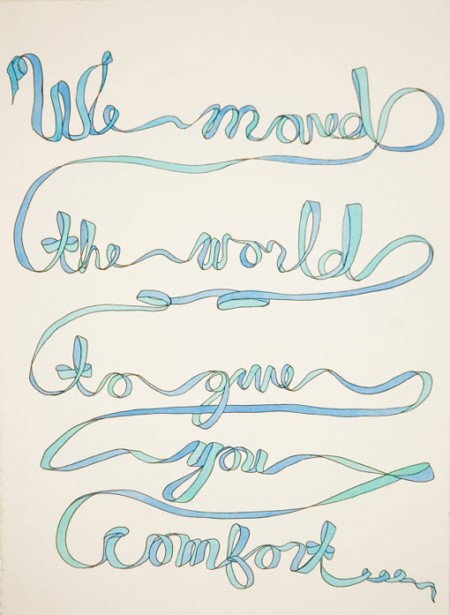 We moved
the world
to give
you
comfort